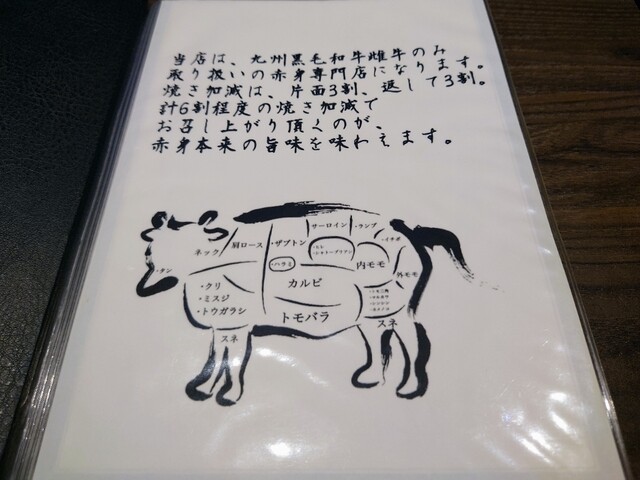 当店は、九州黒毛和牛雌牛のみ
取り扱いの赤身専門店になります。
焼き加減は、片面3割、返して3割。
計6割程度の焼き加減で
お召し上がり頂くのが、
赤身本来の旨味を味わえます。
サーロイン
・ランプ
・イチボ
ネック
肩ロース
・ザブトン
・ヒレ
・シャトーブリアン
・ハラミ
内モモ
外モモ
・タン
・クリ
・ミスジ
・トウガラシ
カルビ
トモバラ
スネ
スネ